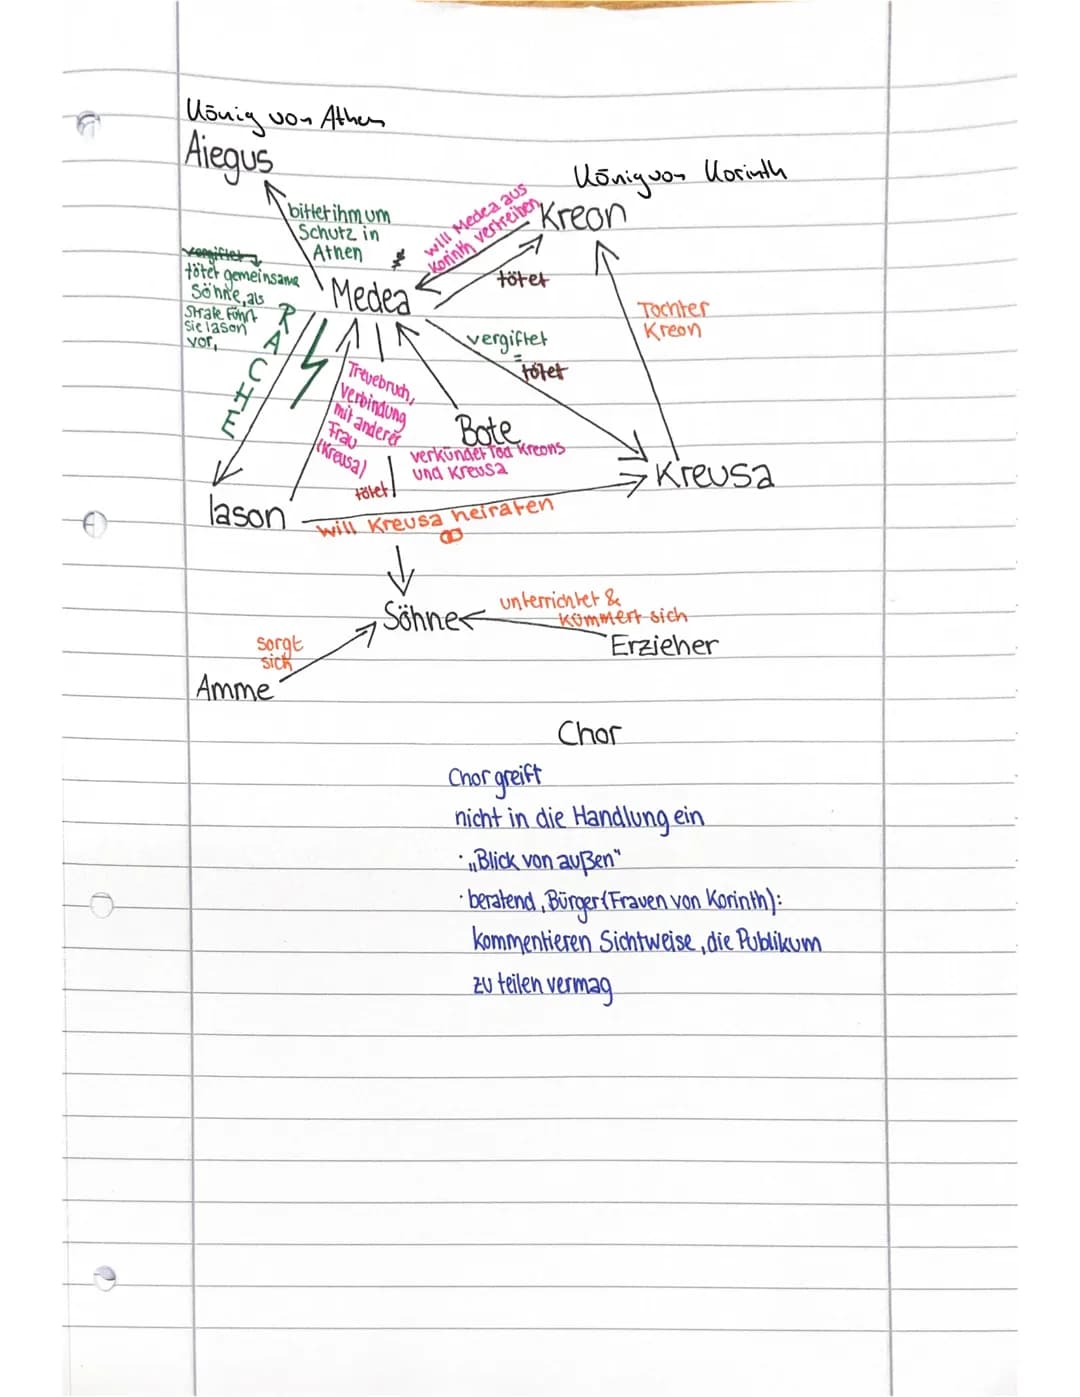 König von Athen
Aiegus
König von Korinth
Kreon
will Medea aus
Korinth vertreiben
bittet ihm um
Schutz in
Athen
vergiftet
tötet gemeinsame
Söhne, als
Strafe führt
sie Iason
vor,
RACHE
Medea
tötet
Tochter
Kreon
vergiftet
=
tötet
Treuebruch,
Verbindung
mit anderer
Frau
(Kreusa)
Bote
verkündet Tod Kreons
und Kreusa
tötet
Kreusa
Iason
will Kreusa heiraten
Söhne
unterrichtet &
kümmert sich
Erzieher
sorgt
sich
Amme
Chor
Chor greift
nicht in die Handlung ein
· „Blick von außen"
· beratend, Bürger (Frauen von Korinth):
kommentieren Sichtweise, die Publikum
zu teilen vermag